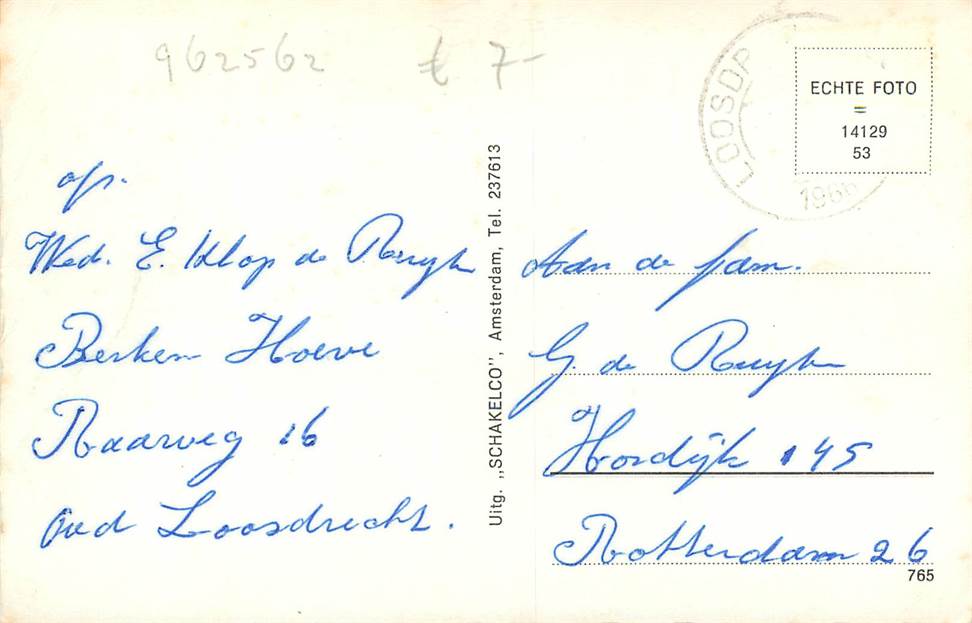 962562 € 7-
LOOSDR
1966
ECHTE FOTO
=
14129
53
afz.
Wed. E. Klop de Ruyter
Berken Hoeve
Raarweg 16
Oud Loosdrecht.
Uitg. „SCHAKELCO”, Amsterdam, Tel. 237613
Aan de fam.
G. de Ruyter
Hordijk 145
Rotterdam 26
765